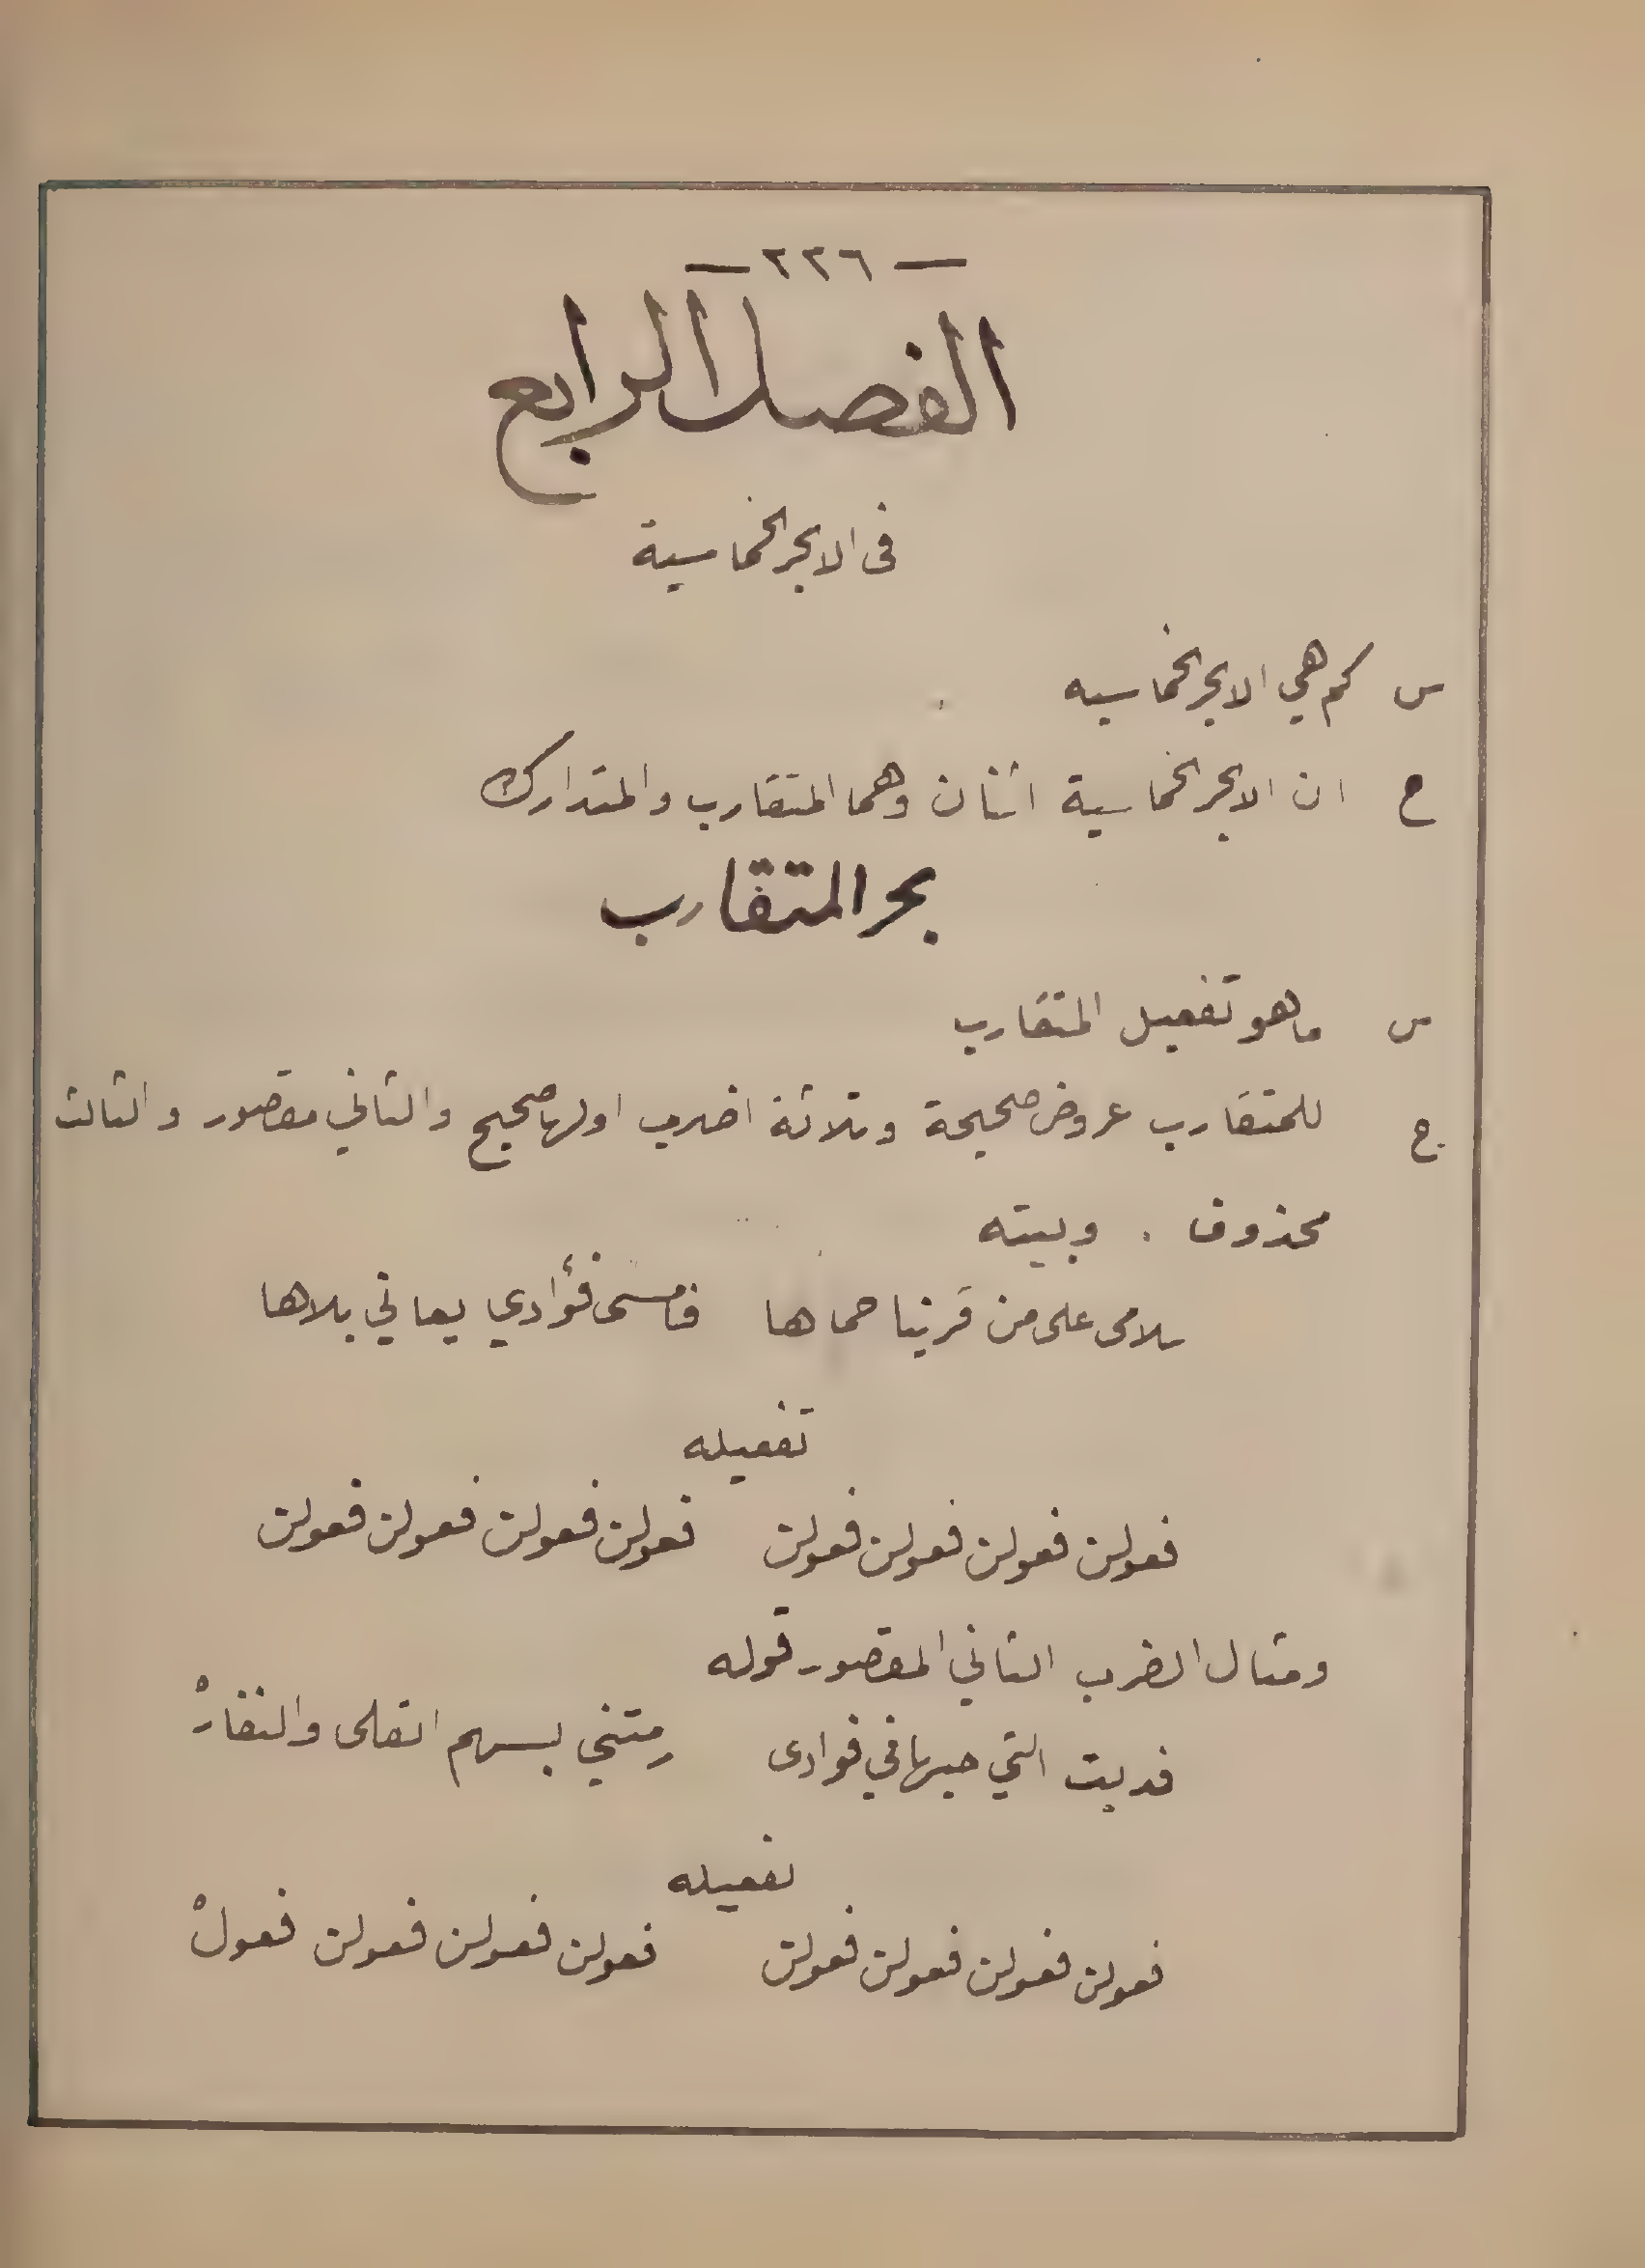 — ٢٢٦ —
الفصل الرابع
فى الابحر الخماسية
س كم هي الابحر الخماسيه
ج ان الابحر الخماسية اثنان وهما المتقارب والمتدارك
بحر المتقارب
س ما هو تفعيل المتقارب
ج للمتقارب عروض صحيحة وثلاثة اضرب اولها صحيح والثاني مقصور والثالث
محذوف . وبيته
سلامى على من قربنا حماها فامسى فؤادي يعاني بلاها
تفعيله
فعولن فعولن فعولن فعولن فعولن فعولن فعولن فعولن
ومثال الضرب الثاني المقصور قوله
فديت التي حبها في فوادى رمتني بسهم القلى والنفارْ
تفعيله
فعولن فعولن فعولن فعولن فعولن فعولن فعولن فعولْ